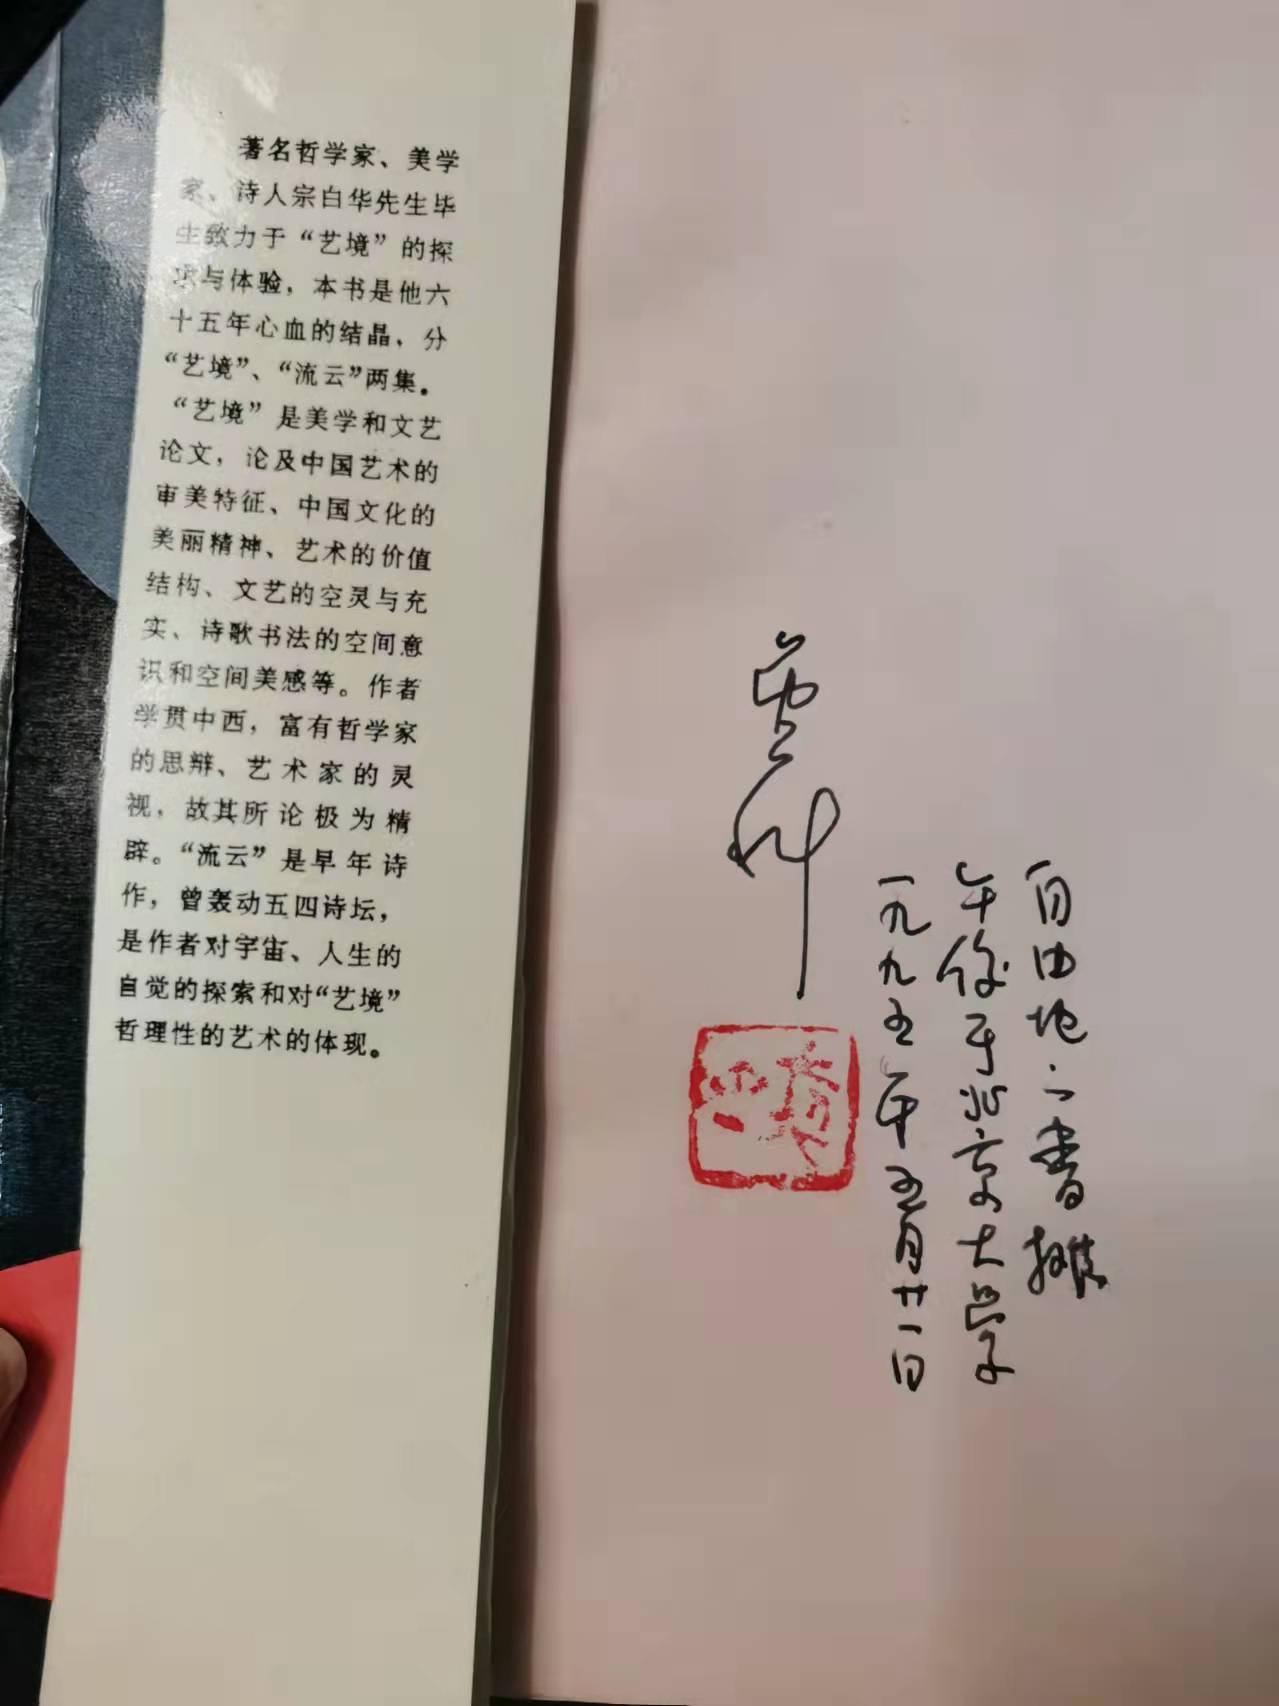 著名哲学家、美学
家、诗人宗白华先生毕
生致力于“艺境”的探
求与体验，本书是他六
十五年心血的结晶，分
“艺境”、“流云”两集。
“艺境”是美学和文艺
论文，论及中国艺术的
审美特征、中国文化的
美丽精神、艺术的价值
结构、文艺的空灵与充
实、诗歌书法的空间意
识和空间美感等。作者
学贯中西，富有哲学家
的思辩、艺术家的灵
视，故其所论极为精
辟。“流云”是早年诗
作，曾轰动五四诗坛，
是作者对宇宙、人生的
自觉的探索和对“艺境”
哲理性的艺术的体现。
自由地之書摊
午後于北京大学
一九九五年五月廿一日